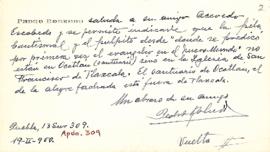 2
Pedro Robredo saluda a su amigo Acevedo
Escobedo y se permite indicarle que la pila
bautismal y el pulpito desde "donde se predicó
por primera vez el evangelio en el nuevo Mundo" no
están en Ocotlan (santuario) sino en la Iglesia de San
Francisco de Tlaxcala. El santuario de Ocotlan, el
de la alegre fachada esta fuera de Tlaxcala.
Un abrazo de su amigo
Vuelta
Puebla, 13 Sur 309.
Apdo. 309
19-II-950.